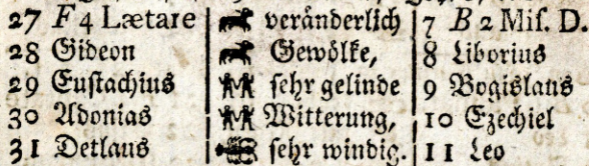 27 F 4 Lætare veränderlich 7 B 2 Mis. D.
28 Gideon Gewölke, 8 Liborius
29 Eustachius sehr gelinde 9 Bogislaus
30 Adonias Witterung, 10 Ezechiel
31 Detlaus sehr windig. 11 Leo